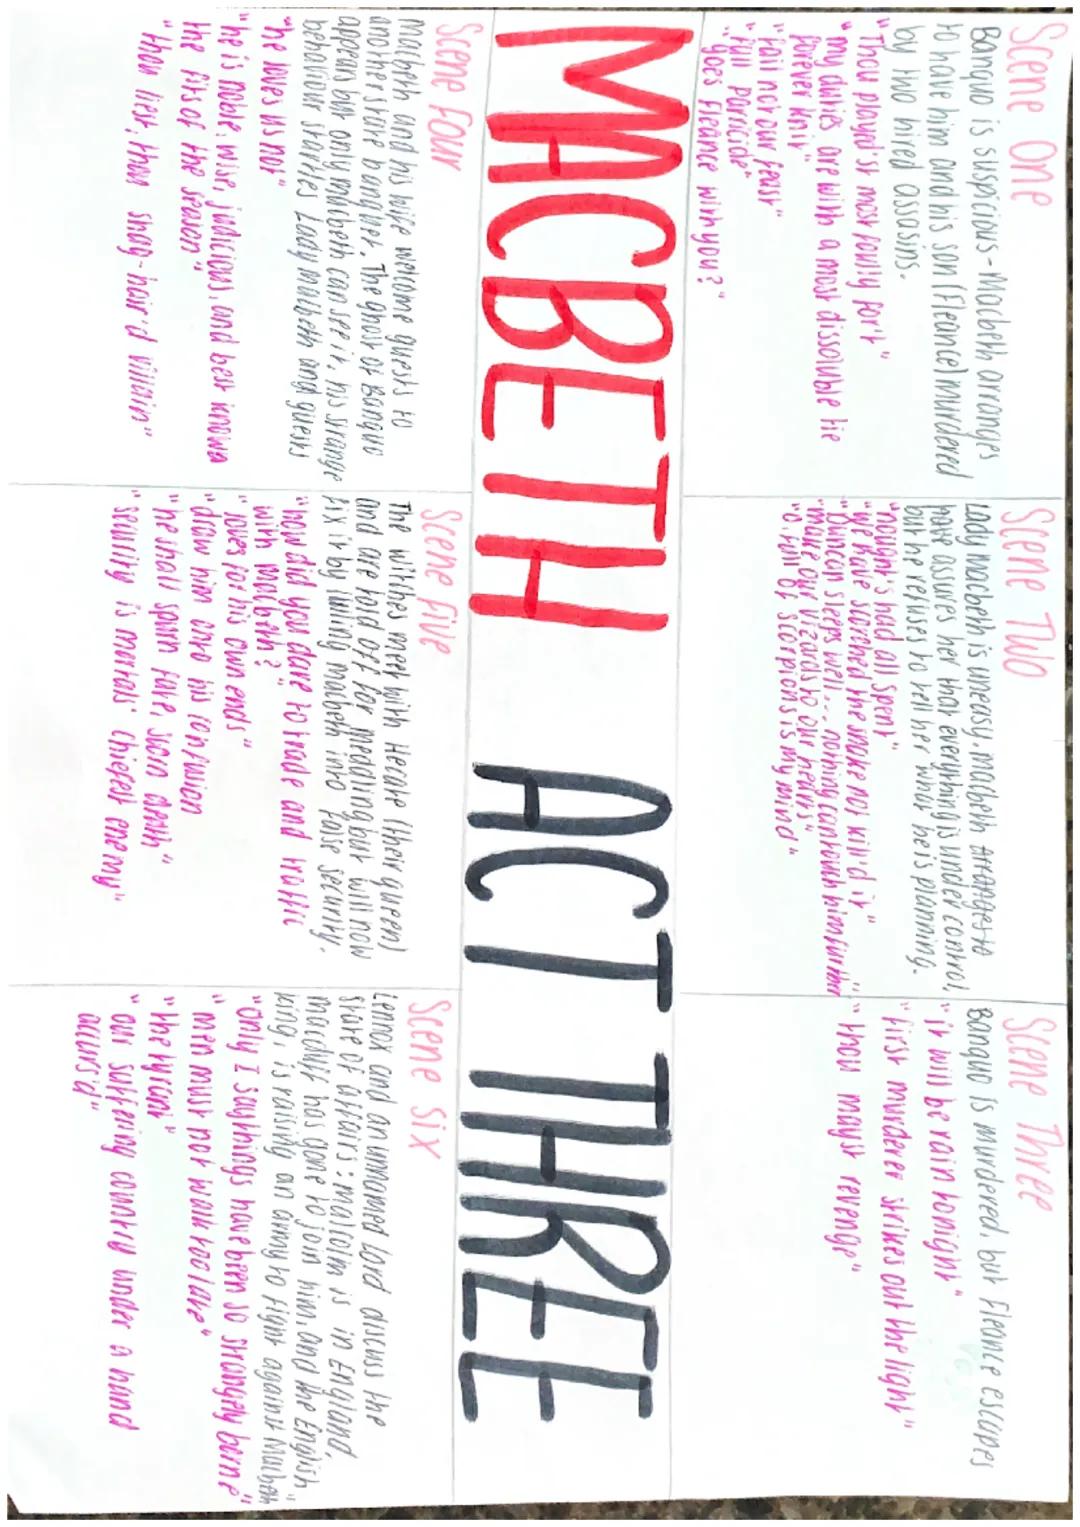 Scene One
Banquo is suspicious - Macbeth arranges
to have him and his son (Fleance) murdered
by two hired assasins.
"Thou played'st most foully for't"
"my duties are with a most dissoluble tie
forever knit"
"Fail not our feast"
"full paricide"
"goes Fleance with you?"
Scene Two
Lady macbeth is uneasy. macbeth arranges to
have assures her that everything is under control,
but he refuses to tell her what he is planning.
"nought's had all spent"
"we have scorched the snake not kill'd it"
"Duncan sleeps well... nothing can touch him further"
"make our vizards to our hearts"
"O, full of scorpions is my mind"
Scene Three
Banquo is murdered, but Fleance escapes
"it will be rain tonight"
"First murderer strikes out the light"
"thou mayst revenge"
MACBETH ACT THREE
Scene Four
macbeth and his wife welcome guests to
another state banquet. The ghost of Banquo
appears but only macbeth can see it, his strange
behaviour startles Lady macbeth and guests
"he loves us not"
"he is noble, wise, judicious, and best knows
the fits of the season"
"thou liest, thou shag-hair'd villain"
Scene Five
The witches meet with Hecate (their queen)
and are told off for meddling but will now
fix it by luring macbeth into false security.
"how did you dare to trade and traffic
with macbeth?"
"loves for his own ends"
"draw him onto his confusion
"he shall spurn fate, scorn death"
"security is mortals' chiefest enemy"
Scene Six
Lennox and an unnamed lord discuss the
state of affairs: malcolm is in England,
macduff has gone to join him, and the English
king, is raising an army to fight against Macbeth
"only I say things have been so strangely borne"
"men must not walk too late"
"the tyrant"
"our suffering country under a hand
accurs'd"